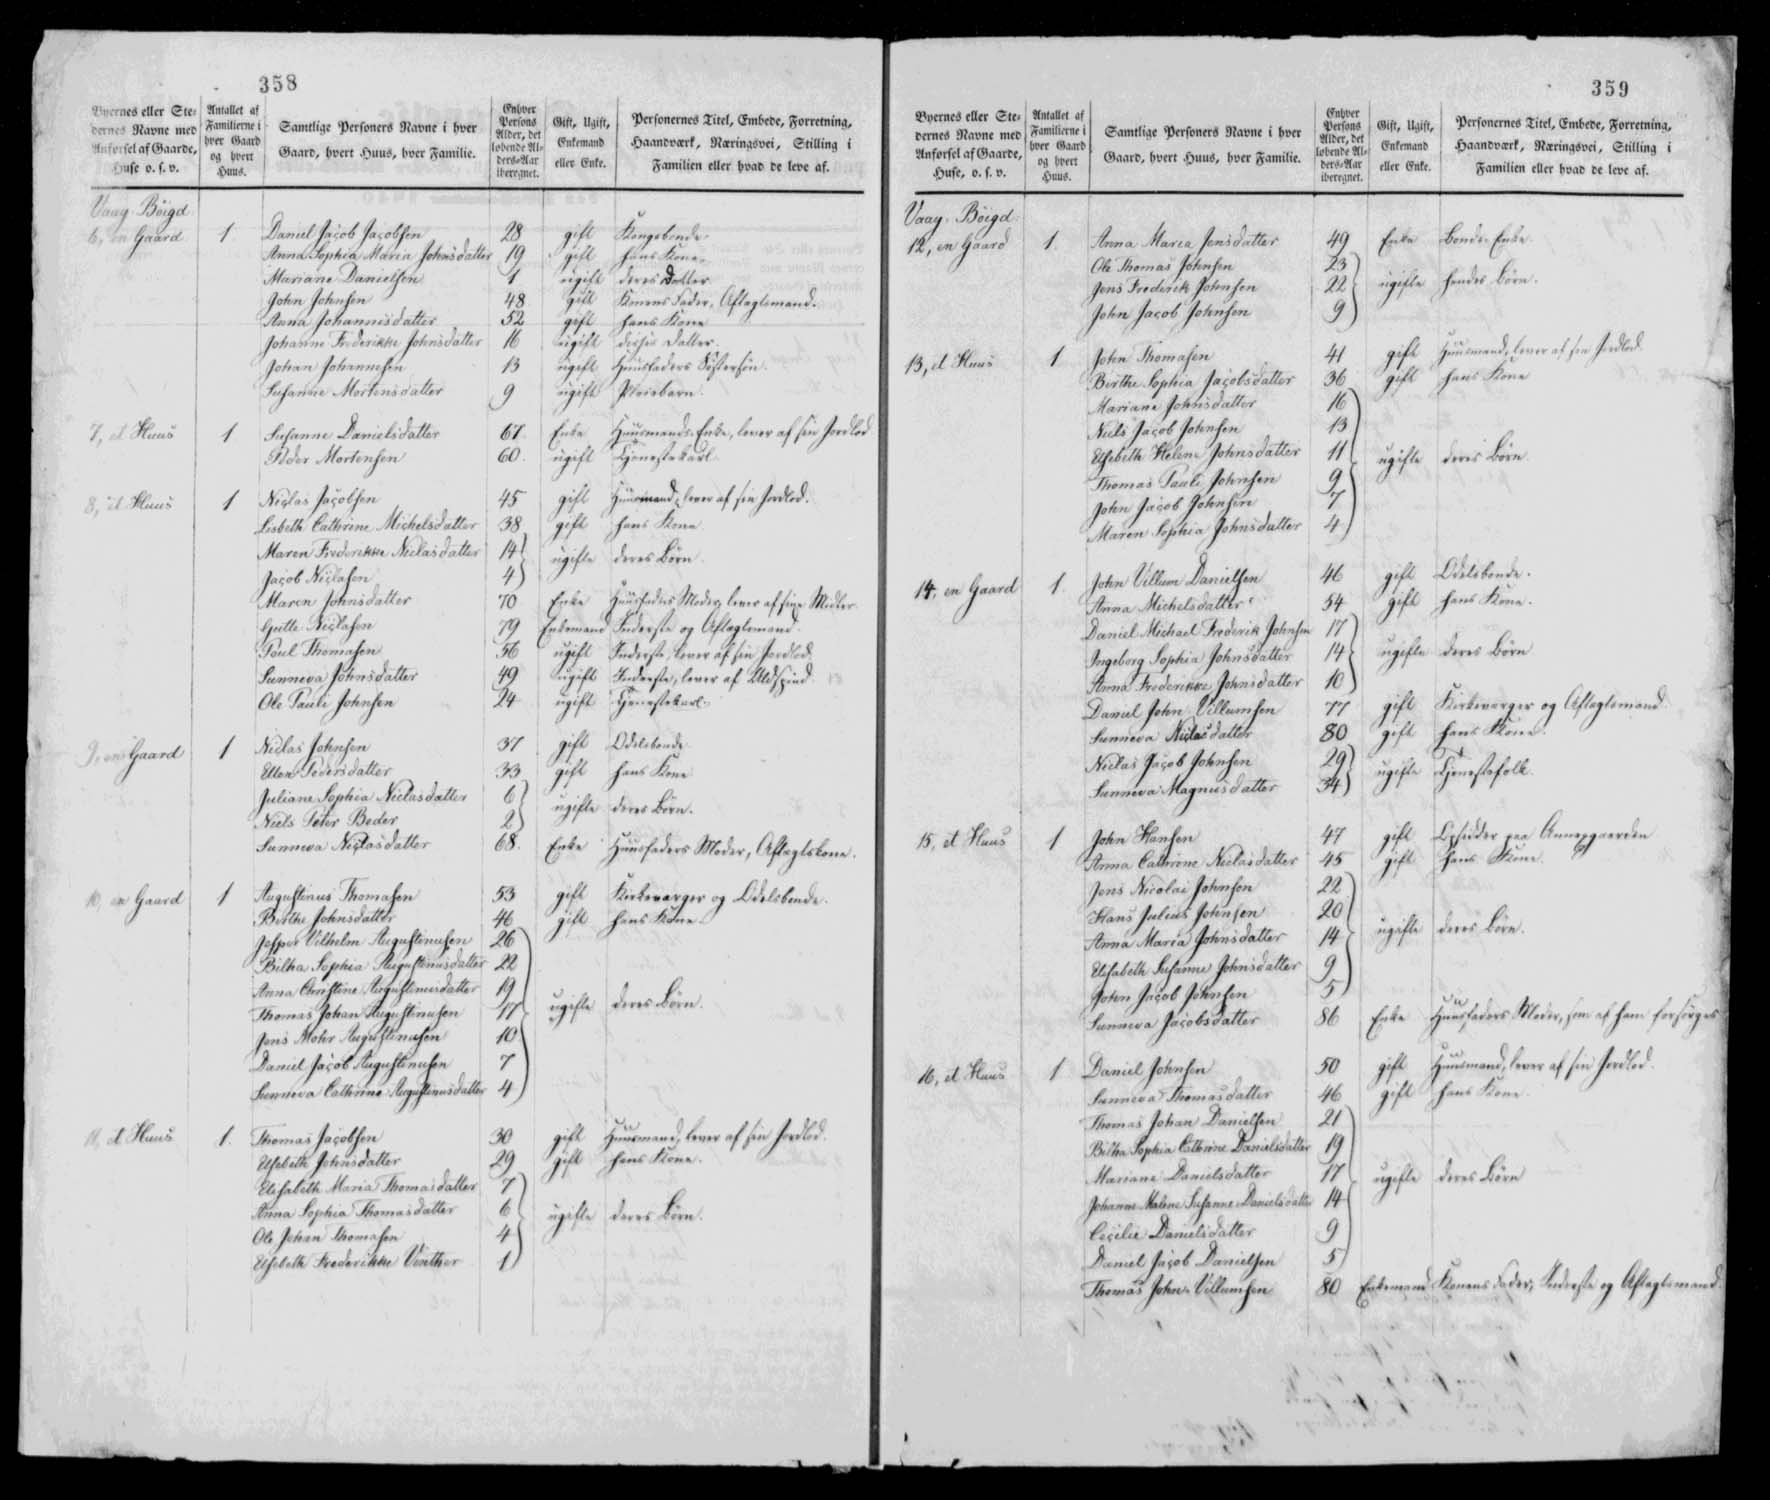 358
Byernes eller Stedernes Navne med Anførsel af Gaarde, Huse o. s. v.
Antallet af Familierne i hver Gaard og hvert Huus.
Samtlige Personers Navne i hver Gaard, hvert Huus, hver Familie.
Enhver Persons Alder, det løbende Alders-Aar iberegnet.
Gift, Ugift, Enkemand eller Enke.
Personernes Titel, Embede, Forretning, Haandværk, Næringsvei, Stilling i Familien eller hvad de leve af.
Vaag Böigd
6, en Gaard 1 Daniel Jacob Jacobsen 28 gift Kongsbonde
Anna Sophia Maria Johnsdatter 19 gift hans Kone
Mariane Danielsen 1 ugift deres Datter
John Johnsen 48 gift Konens Fader, Aftægtsmand.
Anna Johannisdatter 52 gift hans Kone
Johanne Frederikke Johnsdatter 16 ugift disses Datter.
Johan Johannesen 13 ugift Huusfaders Söstersön.
Susanne Mortensdatter 9 ugift Pleiebarn.
7, et Huus 1 Susanne Danielsdatter 67 Enke Huusmands Enke, lever af sin Jordlod
Peder Mortensen 60 ugift Tjenestekarl
8, et Huus 1 Niclas Jacobsen 45 gift Huusmand, lever af sin Jordlod.
Lisbeth Cathrine Michelsdatter 38 gift hans Kone
Maren Frederikke Niclasdatter 14 ugifte deres Börn.
Jacob Niclasen 4
Maren Johnsdatter 70 Enke Huusfaders Moder, lever af sine Midler
Gutte Niclasen 79 Enkemand Inderste og Aftægtsmand.
Poul Thomasen 56 ugift Inderste, lever af sin Jordlod.
Sunneva Johnsdatter 49 ugift Inderste, lever af Uldspind.
Ole Pauli Johnsen 24 ugift Tjenestekarl.
9, en Gaard 1 Niclas Johnsen 37 gift Odelsbonde
Ellen Pedersdatter 33 gift hans Kone
Juliane Sophia Niclasdatter 6 ugifte deres Börn.
Niels Peter Beder 2
Sunneva Niclasdatter 68 Enke Huusfaders Moder, Aftægtskone.
10, en Gaard 1 Augustinus Thomasen 53 gift Kirkeværger og Odelsbonde.
Birthe Johnsdatter 46 gift hans Kone
Jesper Vilhelm Augustinusen 26
Bilha Sophia Augustinusdatter 22
Anna Christine Augustinusdatter 19
Thomas Johan Augustinusen 17 ugifte deres Börn.
Jens Mohr Augustinusen 10
Daniel Jacob Augustinusen 7
Sunneva Cathrine Augustinusdatter 4
11, et Huus 1. Thomas Jacobsen 30 gift Huusmand, lever af sin Jordlod.
Elsebeth Johnsdatter 29 gift hans Kone.
Elisabeth Maria Thomasdatter 7
Anna Sophia Thomasdatter 6 ugifte deres Börn.
Ole Johan Thomasen 4
Elsebeth Frederikke Vinther 1
359
Byernes eller Stedernes Navne med Anførsel af Gaarde, Huse, o. s. v.
Antallet af Familierne i hver Gaard og hvert Huus.
Samtlige Personers Navne i hver Gaard, hvert Huus, hver Familie.
Enhver Persons Alder, det løbende Alders-Aar iberegnet.
Gift, Ugift, Enkemand eller Enke.
Personernes Titel, Embede, Forretning, Haandværk, Næringsvei, Stilling i Familien eller hvad de leve af.
Vaag Böigd
12, en Gaard 1. Anna Maria Jensdatter 49 Enke Bonde-Enke
Ole Thomas Johnsen 23
Jens Frederik Johnsen 22 ugifte hendes Börn.
John Jacob Johnsen 9
13, et Huus 1 John Thomasen 41 gift Huusmand, lever af sin Jordlod.
Birthe Sophia Jacobsdatter 36 gift hans Kone
Mariane Johnsdatter 16
Niels Jacob Johnsen 13
Elsebeth Helene Johnsdatter 11 ugifte deres Börn.
Thomas Pauli Johnsen 9
John Jacob Johnsen 7
Maren Sophia Johnsdatter 4
14, en Gaard 1. John Villum Danielsen 46 gift Odelsbonde.
Anna Michelsdatter 54 gift hans Kone.
Daniel Michael Frederik Johnsen 17
Ingeborg Sophia Johnsdatter 14 ugifte deres Börn
Anna Frederikke Johnsdatter 10
Daniel John Villumsen 77 gift Kirkeværger og Aftægtsmand.
Sunneva Niclasdatter 80 gift hans Kone.
Niclas Jacob Johnsen 29 ugifte Tjenestefolk.
Sunneva Magnusdatter 34
15, et Huus 1 John Hansen 47 gift Opsidder paa Annexgaarden
Anna Cathrine Niclasdatter 45 gift hans Kone.
Jens Nicolai Johnsen 22
Hans Julius Johnsen 20
Anna Maria Johnsdatter 14 ugifte deres Börn.
Elisabeth Susanne Johnsdatter 9
John Jacob Johnsen 5
Sunneva Jacobsdatter 86 Enke Huusfaders Moder, som af ham forsörges
16, et Huus 1 Daniel Johnsen 50 gift Huusmand, lever af sin Jordlod.
Sunneva Thomasdatter 46 gift hans Kone.
Thomas Johan Danielsen 21
Bilha Sophia Cathrine Danielsdatter 19
Mariane Danielsdatter 17 ugifte deres Börn
Johanne Malene Susanne Danielsdatter 14
Cecilie Danielsdatter 9
Daniel Jacob Danielsen 5
Thomas John Villumsen 80 Enkemand Konens Fader, Inderste og Aftægtsmand.